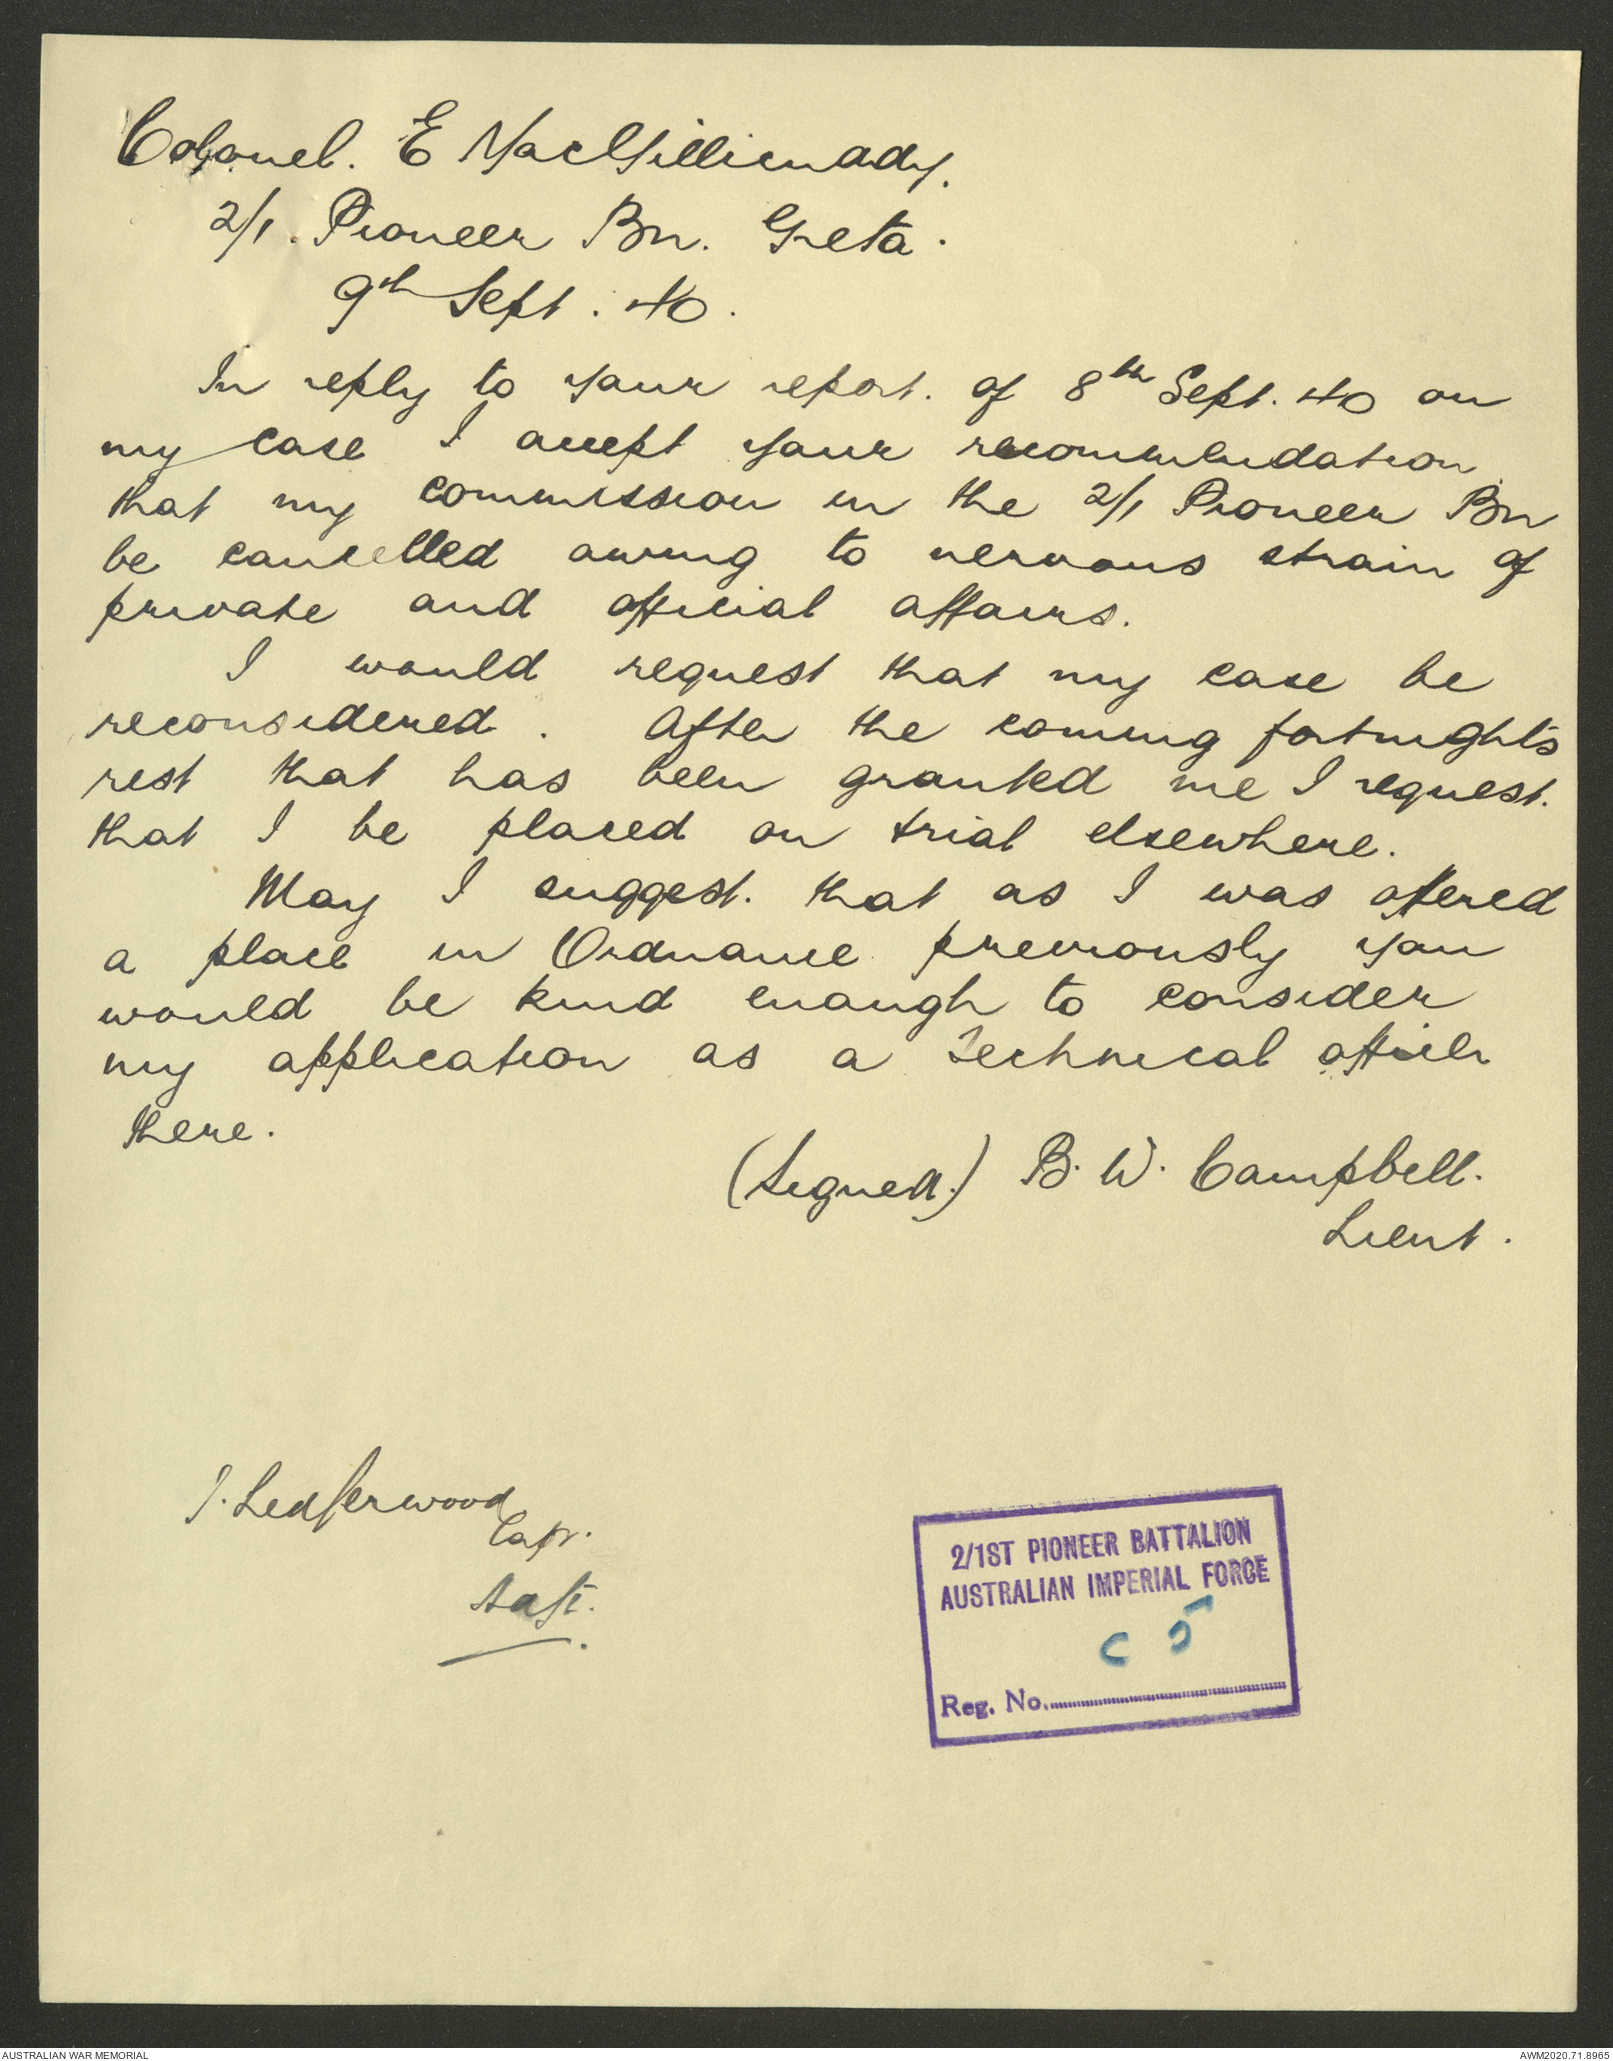 Colonel. E MacGillicuddy.
2/1. Pioneer Bn. Greta.
9th Sept. 40.
In reply to your report. of 8th Sept. 40 on
my case I accept your recommendation
that my commission in the 2/1 Pioneer Bn
be cancelled owing to nervous strain of
private and official affairs.
I would request that my case be
reconsidered. After the coming fortnights
rest that has been granted me I request.
that I be placed on trial elsewhere.
May I suggest. that as I was offered
a place in Ordnance previously you
would be kind enough to consider
my application as a Technical officer
there.
(Signed.) B. W. Campbell.
Lieut.
Capt.
2/1ST PIONEER BATTALION
AUSTRALIAN IMPERIAL FORCE
C 5
Reg. No.
AUSTRALIAN WAR MEMORIAL
AWM2020.71.8965